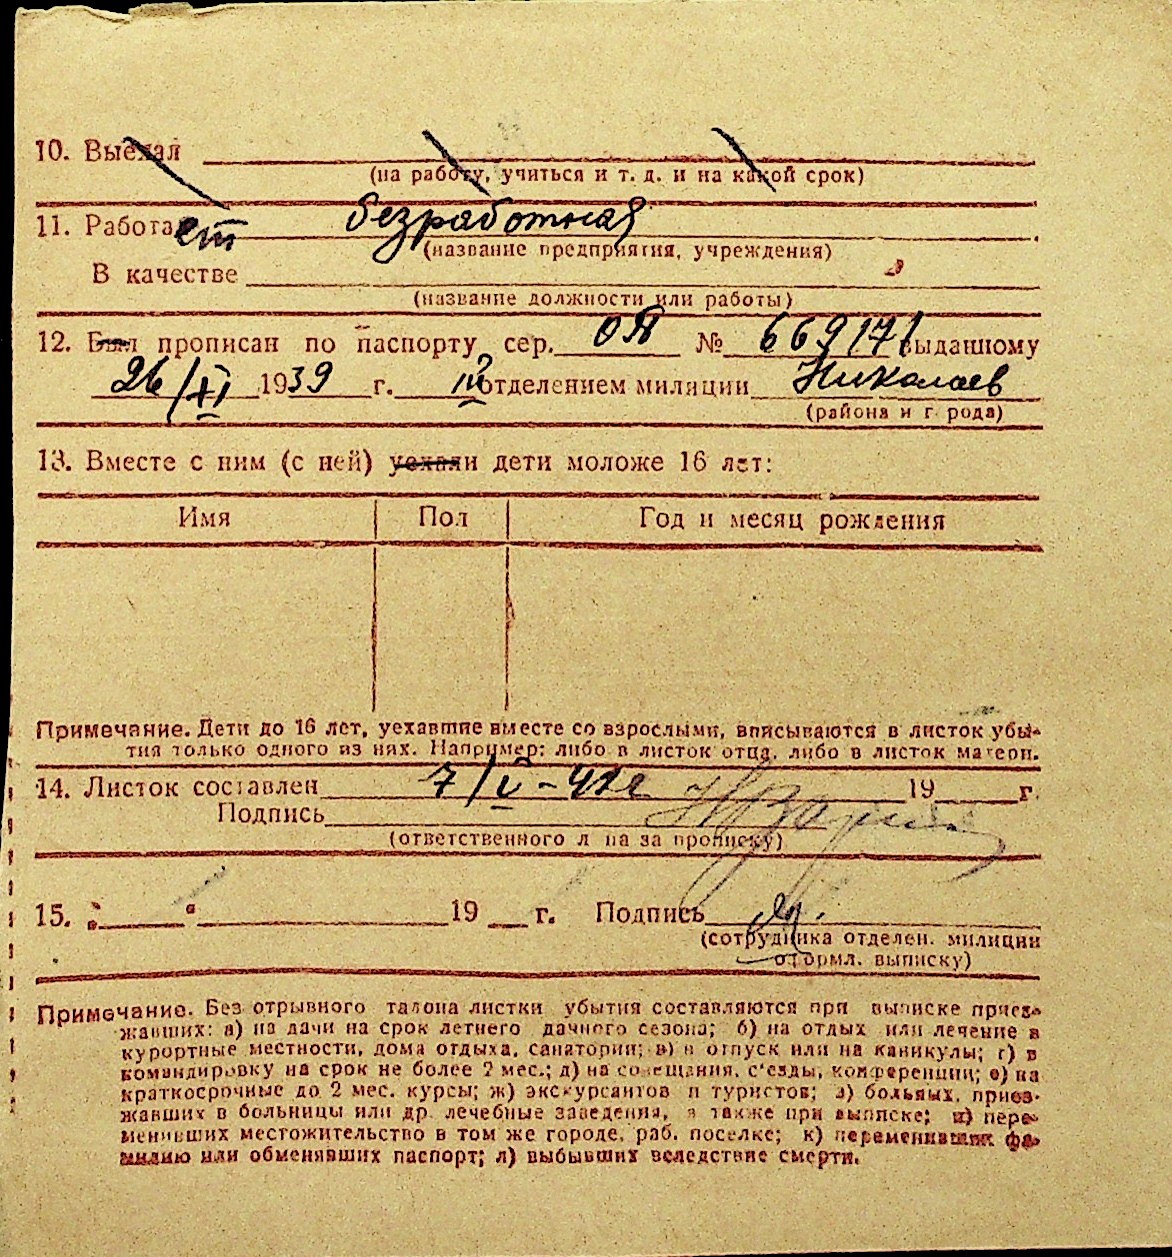 10. Выехал
(на работу, учиться и т. д. и на какой срок)
11. Работает безработная
(название предприятия, учреждения)
В качестве
(название должности или работы)
12. Был прописан по паспорту сер. ОЯ № 669171 выданному
26/XI 1939 г. IV отделением милиции Николаев
(района и г рода)
13. Вместе с ним (с ней) уехали дети моложе 16 лет:
Имя Пол Год и месяц рождения
Примечание. Дети до 16 лет, уехавшие вместе со взрослыми, вписываются в листок убы-
тия только одного из них. Например: либо в листок отца, либо в листок матери.
14. Листок составлен 7/V-41г 19 г.
Подпись
(ответственного л ца за прописку)
15. „ “ 19 г. Подпись
(сотрудника отделен. милиции
оформл. выписку)
Примечание. Без отрывного талона листки убытия составляются при выписке приез-
жавших: а) на дачи на срок летнего дачного сезона; б) на отдых или лечение в
курортные местности, дома отдыха, санатории; в) в отпуск или на каникулы; г) в
командировку на срок не более 2 мес.; д) на совещания, с'езды, конференции; е) на
краткосрочные до 2 мес. курсы; ж) экскурсантов и туристов; з) больных, приез-
жавших в больницы или др. лечебные заведения, а также при выписке; и) пере-
менивших местожительство в том же городе, раб. поселке; к) переменивших фа-
милию или обменявших паспорт; л) выбывших вследствие смерти.